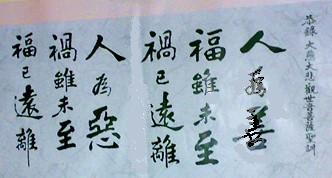 恭錄大慈大悲觀世音菩薩聖訓
人為善
福雖未至
禍已遠離
人為惡
禍雖未至
福已遠離